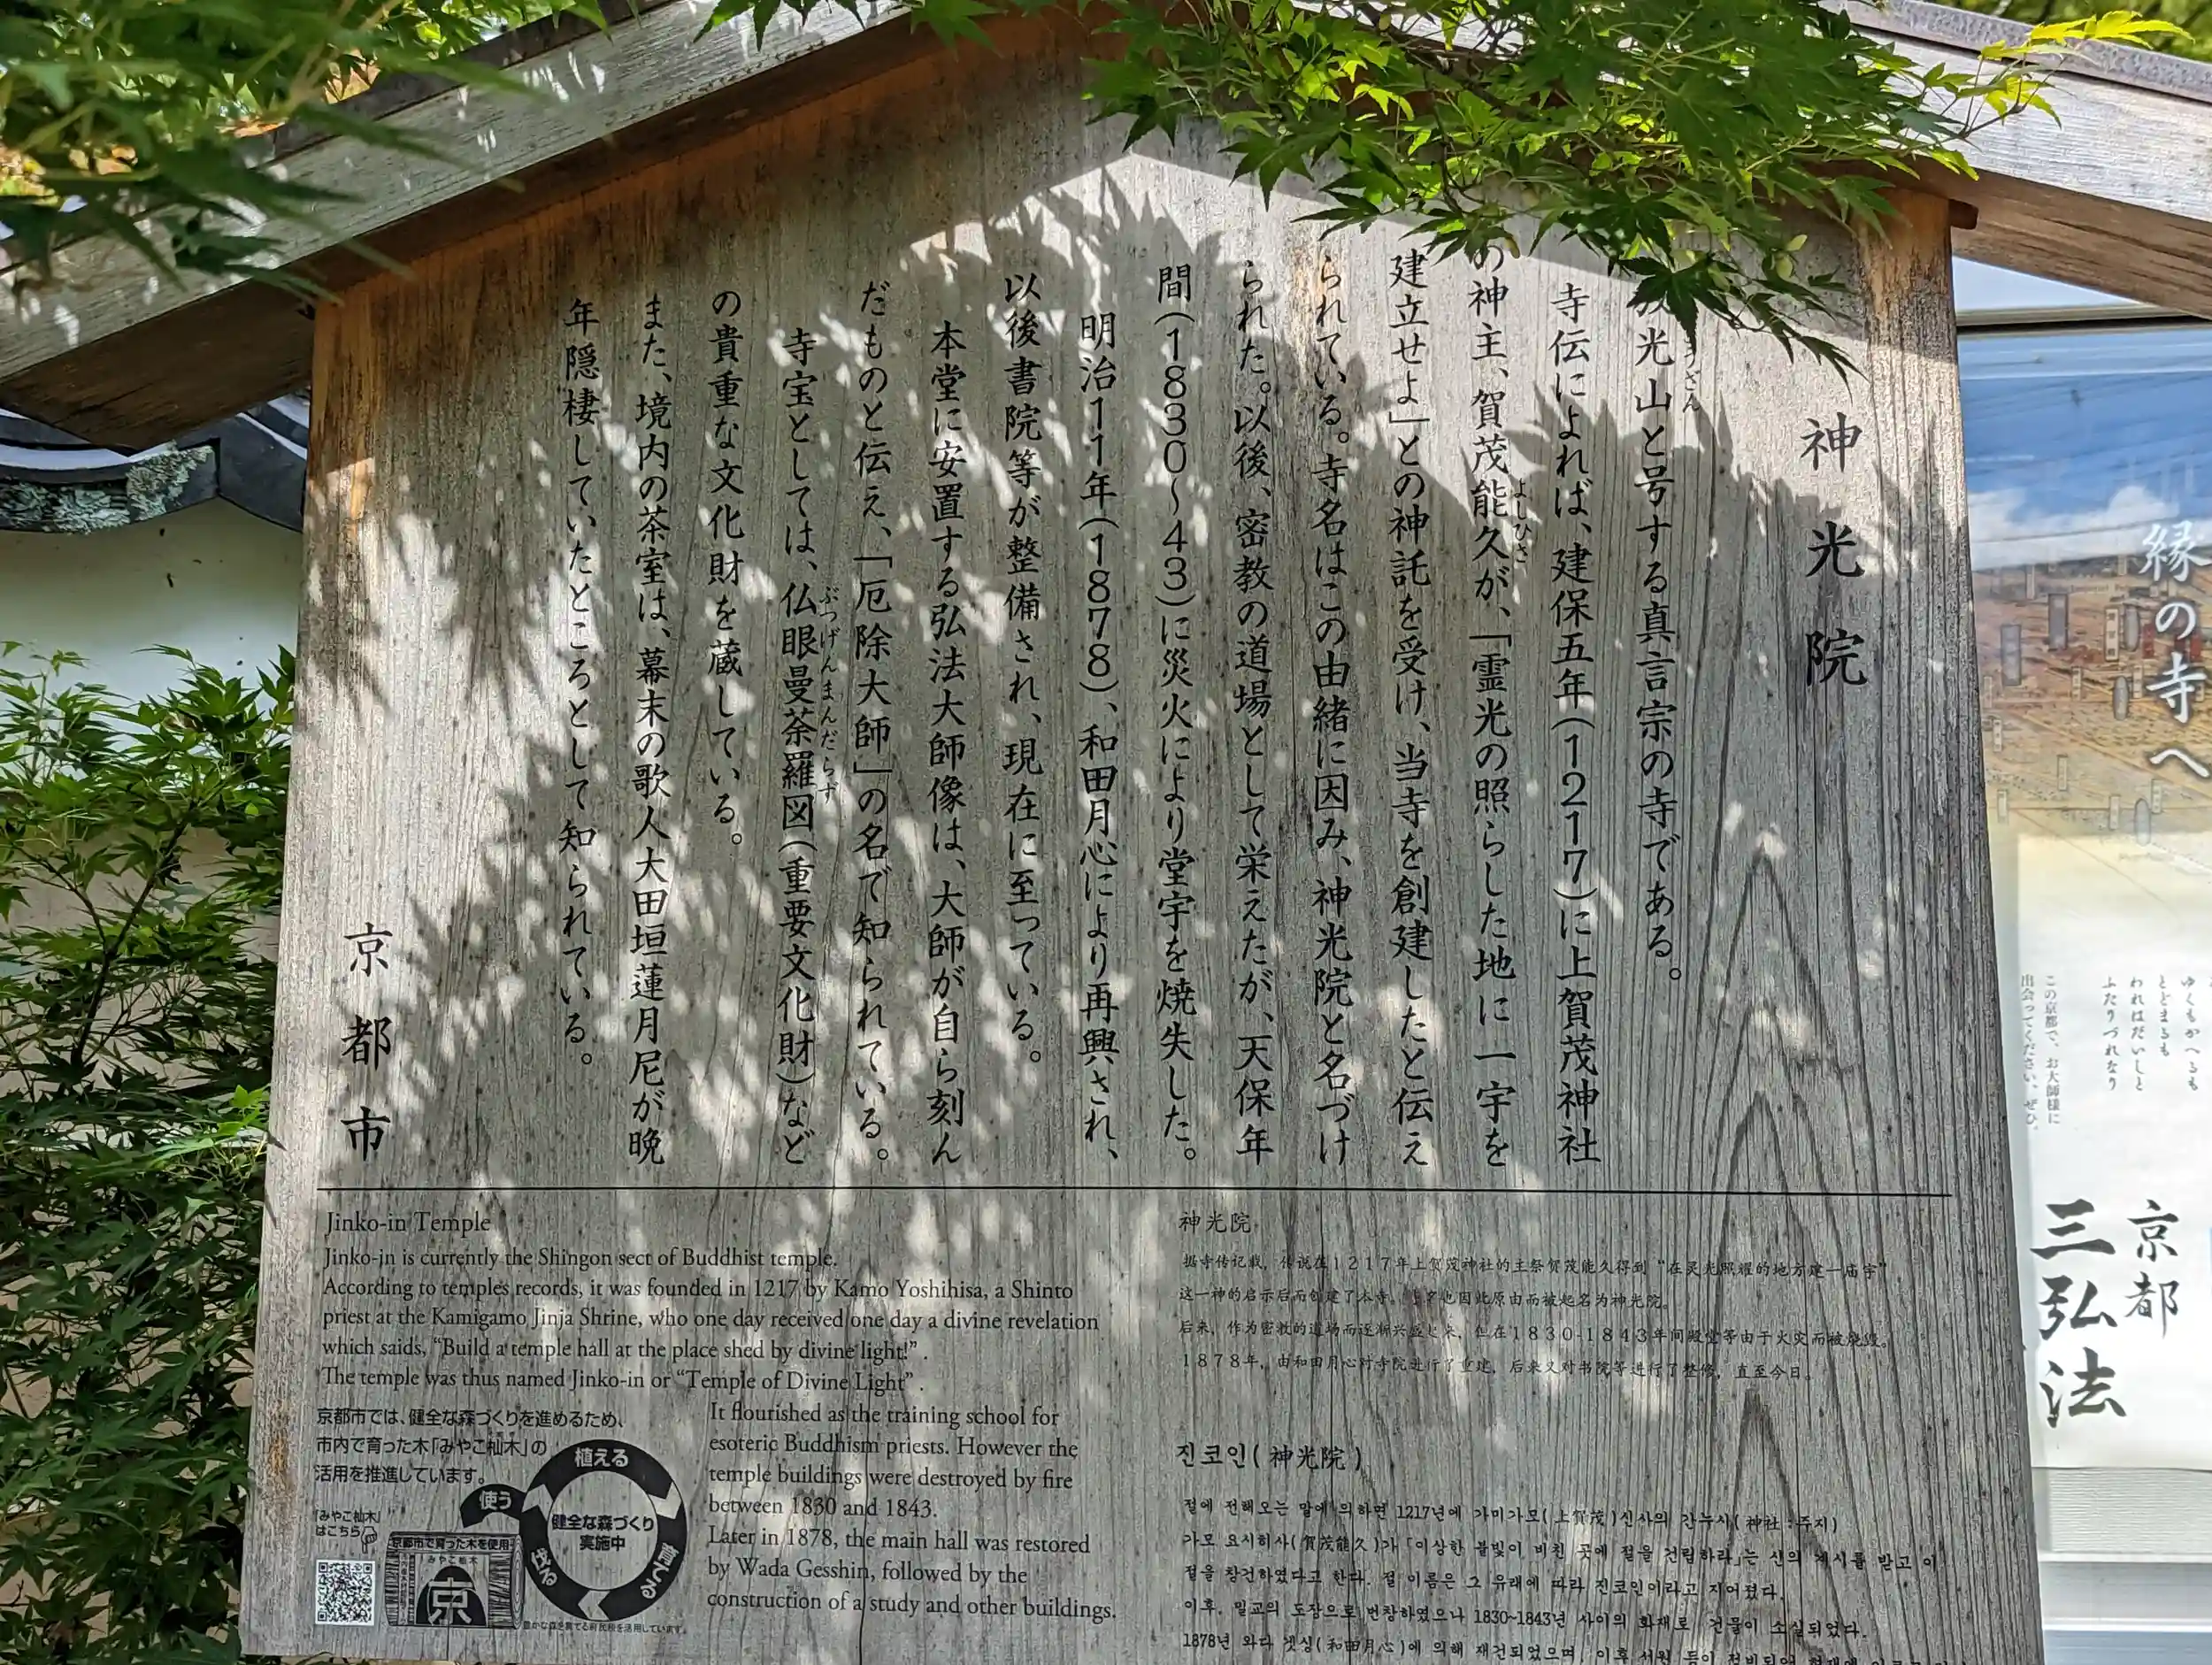 神光院
光山と号する真言宗の寺である。
寺伝によれば、建保五年(1217)に上賀茂神社
の神主、賀茂能久が、「霊光の照らした地に一宇を
よしひさ
建立せよ」との神託を受け、当寺を創建したと伝え
られている。寺名はこの由緒に因み、神光院と名づけ
られた。以後、密教の道場として栄えたが、天保年
間(1830～43)に災火により堂宇を焼失した。
明治11年(1878)、和田月心により再興され、
以後書院等が整備され、現在に至っている。
本堂に安置する弘法大師像は、大師が自ら刻ん
だものと伝え、「厄除大師」の名で知られている。
寺宝としては、仏眼曼荼羅図(重要文化財)など
ぶつげんまんだらず
の貴重な文化財を蔵している。
また、境内の茶室は、幕末の歌人大田垣蓮月尼が晩
年隠棲していたところとして知られている。
京都市
Jinko-in Temple
Jinko-in is currently the Shingon sect of Buddhist temple.
According to temples records, it was founded in 1217 by Kamo Yoshihisa, a Shinto
priest at the Kamigamo Jinja Shrine, who one day received one day a divine revelation
which saids, “Build a temple hall at the place shed by divine light!” .
The temple was thus named Jinko-in or “Temple of Divine Light” .
It flourished as the training school for
esoteric Buddhism priests. However the
temple buildings were destroyed by fire
between 1830 and 1843.
Later in 1878, the main hall was restored
by Wada Gesshin, followed by the
construction of a study and other buildings.
京都市では、健全な森づくりを進めるため、
市内で育った木「みやこ杣木」の
活用を推進しています。
「みやこ杣木」
はこちら
植える
育てる
伐る
使う
健全な森づくり
実施中
京都市で育った木を使用
みやこ杣木
京
豊かな森を育てる府民税を活用しています。
神光院
据寺传记载，传说在1217年上贺茂神社的主祭贺茂能久得到“在灵光照耀的地方建一庙宇”
这一神的启示后而创建了本寺。寺名也因此原由而被起名为神光院。
后来，作为密教的道场而逐渐兴盛起来，但在1830-1843年间殿堂等由于火灾而被烧毁。
1878年，由和田月心对寺院进行了重建，后来又对书院等进行了整修，直至今日。
진코인(神光院)
절에 전해오는 말에 의하면 1217년에 가미가모(上賀茂)신사의 간누시(神社:주지)
가모 요시히사(賀茂能久)가「이상한 불빛이 비친 곳에 절을 건립하라」는 신의 계시를 받고 이
절을 창건하였다고 한다. 절 이름은 그 유래에 따라 진코인이라고 지어졌다.
이후, 밀교의 도장으로 번창하였으나 1830~1843년 사이의 화재로 건물이 소실되었다.
1878년 와다 겟싱(和田月心)에 의해 재건되었으며, 이후 서원 등이
縁の寺へ
ゆくもかへるも
とどまるも
われはだいしと
ふたりづれなり
この京都で、お大師様に
出会ってください、ぜひ。
京都
三弘法